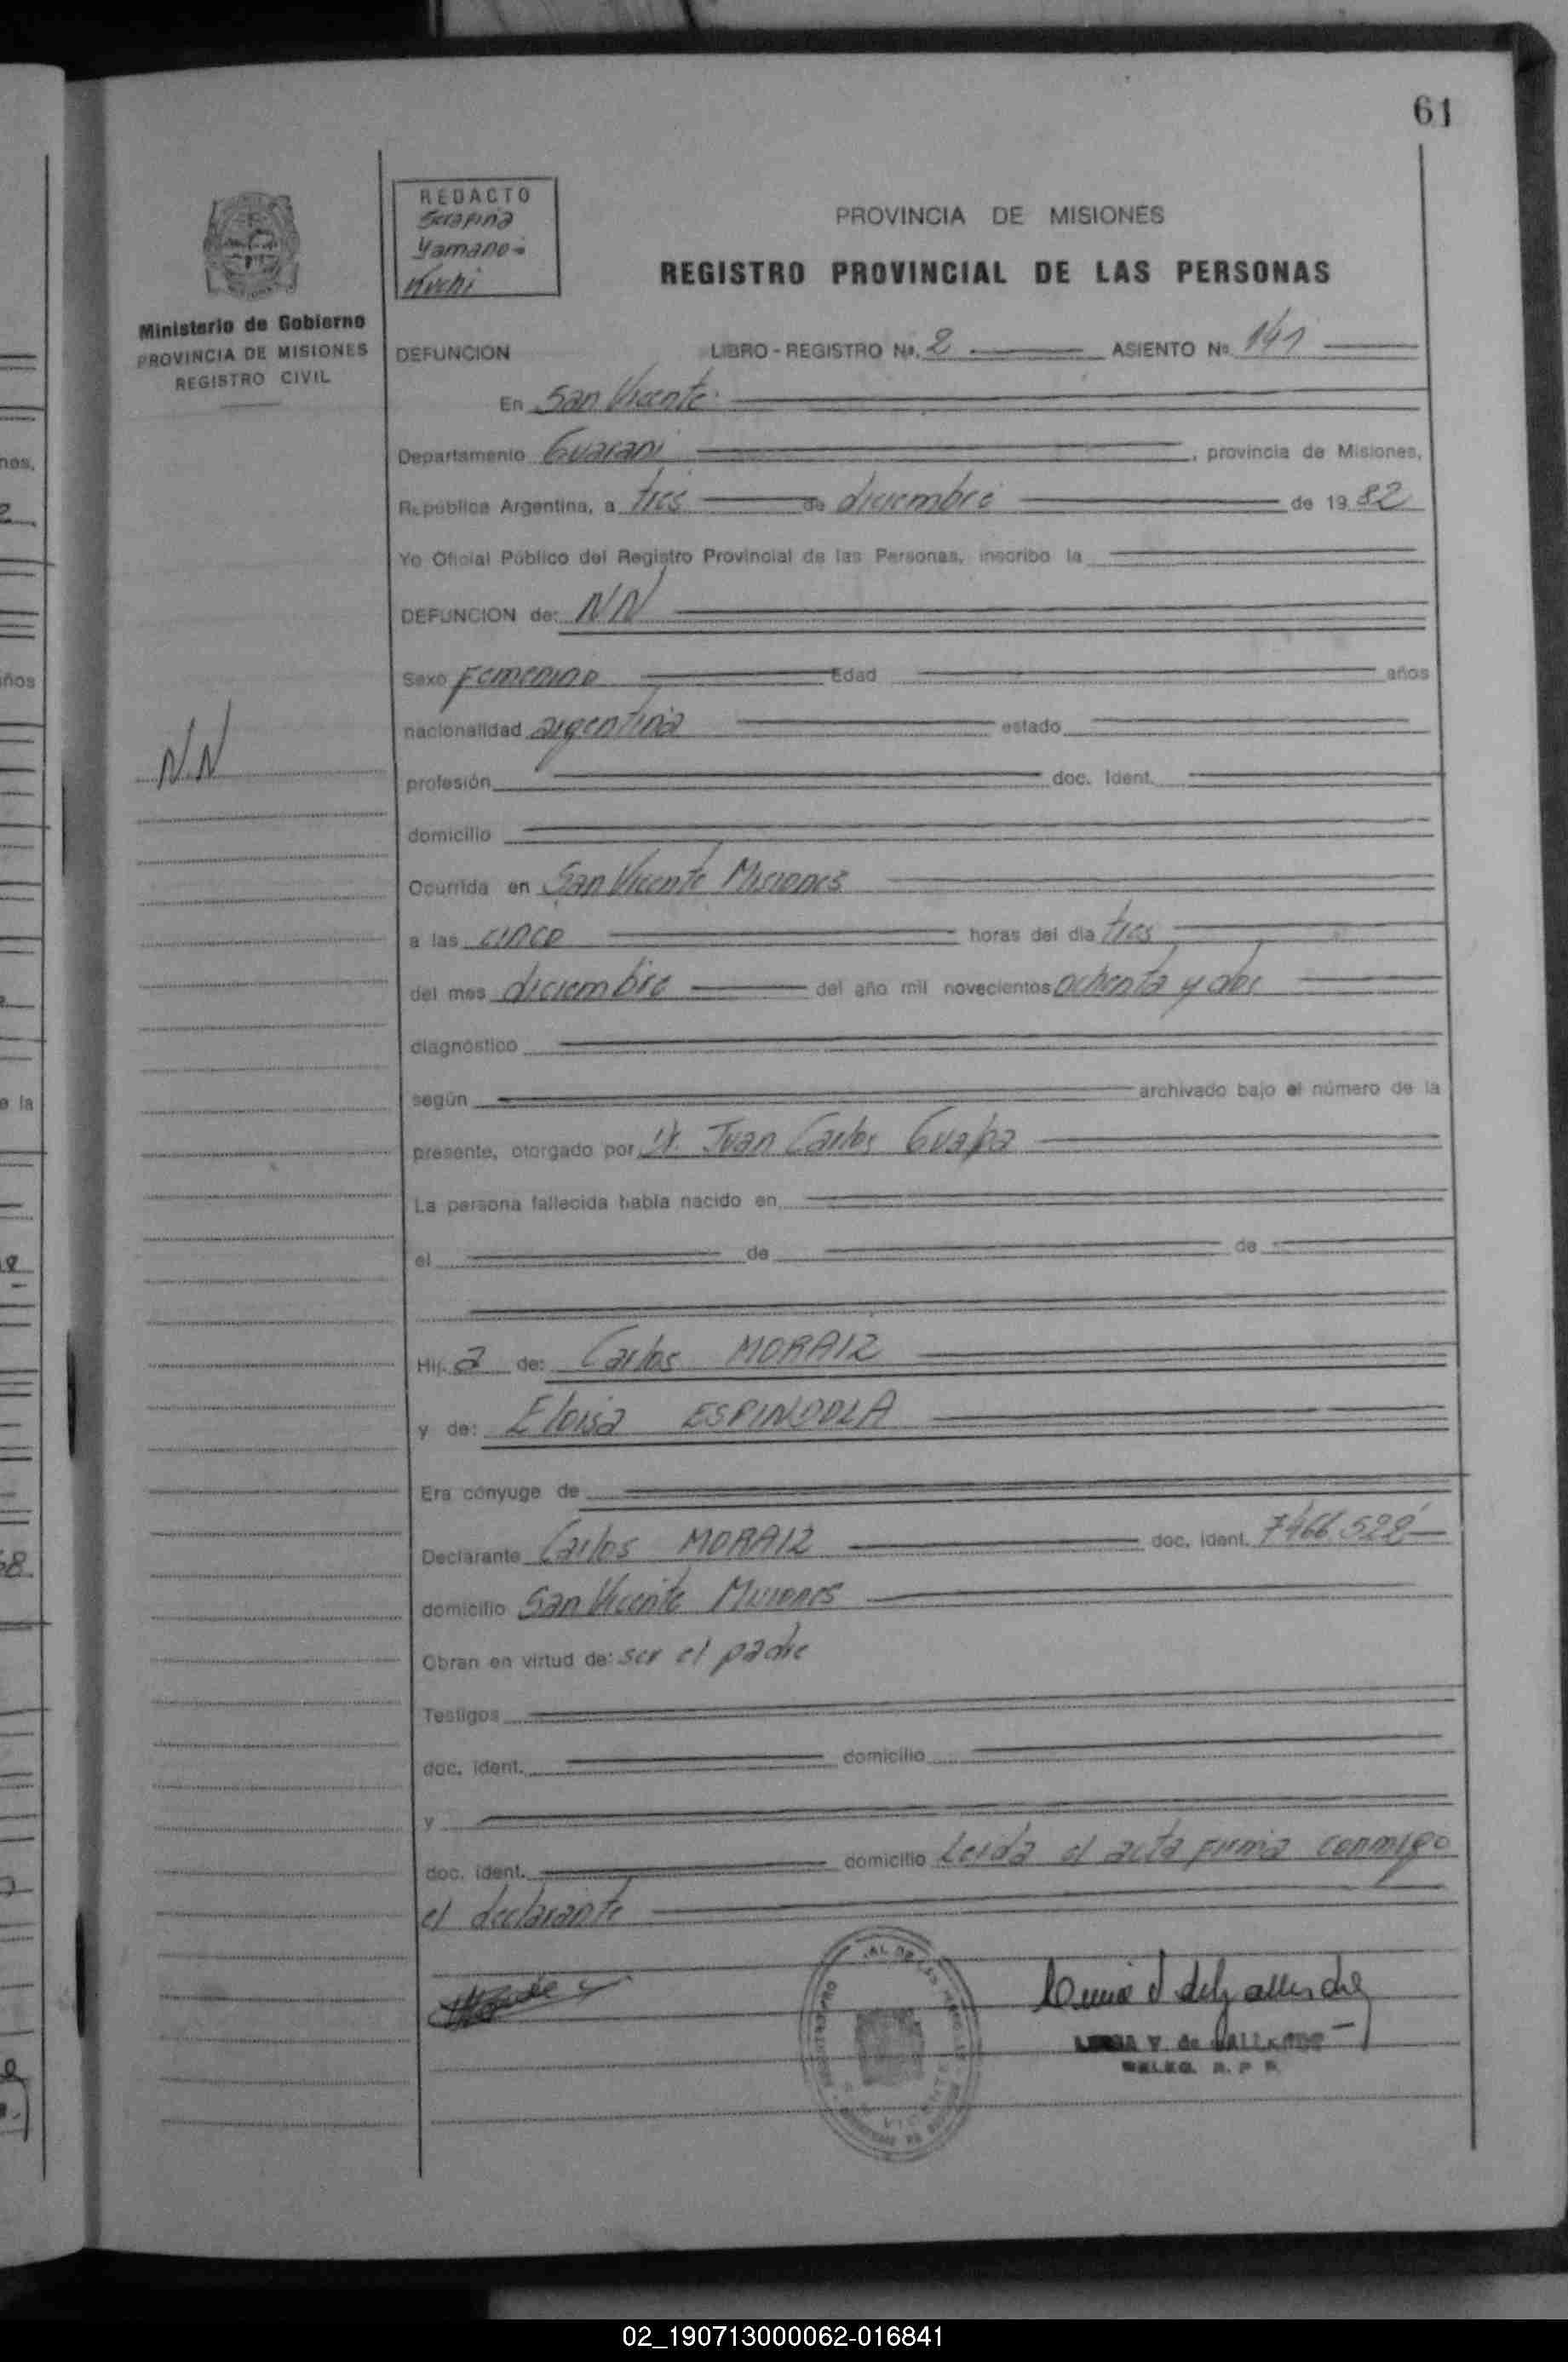 61
REDACTO
Serafina
Yamano-
Kuchi
PROVINCIA DE MISIONES
REGISTRO PROVINCIAL DE LAS PERSONAS
Ministerio de Gobierno
PROVINCIA DE MISIONES
REGISTRO CIVIL
DEFUNCION LIBRO - REGISTRO Nº. 2 ASIENTO Nº. 141
En San Vicente
Departamento Guarani, provincia de Misiones,
República Argentina, a tres de diciembre de 1982
Yo Oficial Público del Registro Provincial de las Personas, inscribo la
DEFUNCION de: NN
Sexo Femenino Edad años
nacionalidad argentina estado
NN
profesión doc. ident.
domicilio
Ocurrida en San Vicente Misiones
a las cinco horas del día tres
del mes diciembre del año mil novecientos ochenta y dos
diagnóstico
según archivado bajo el número de la
presente, otorgado por Dr. Juan Carlos
La persona fallecida había nacido en
el de de
Hij a de: Carlos MORAIZ
y de: Eloisa ESPINDOLA
Era cónyuge de
Declarante Carlos MORAIZ doc. ident. 7466522
domicilio San Vicente Misiones
Obran en virtud de: ser el padre
Testigos
doc. ident. domicilio
y
doc. ident. domicilio Leida el acta firma conmigo
el declarante
V. de GALLARDO
DELEG. R. P. P.
02_190713000062-016841